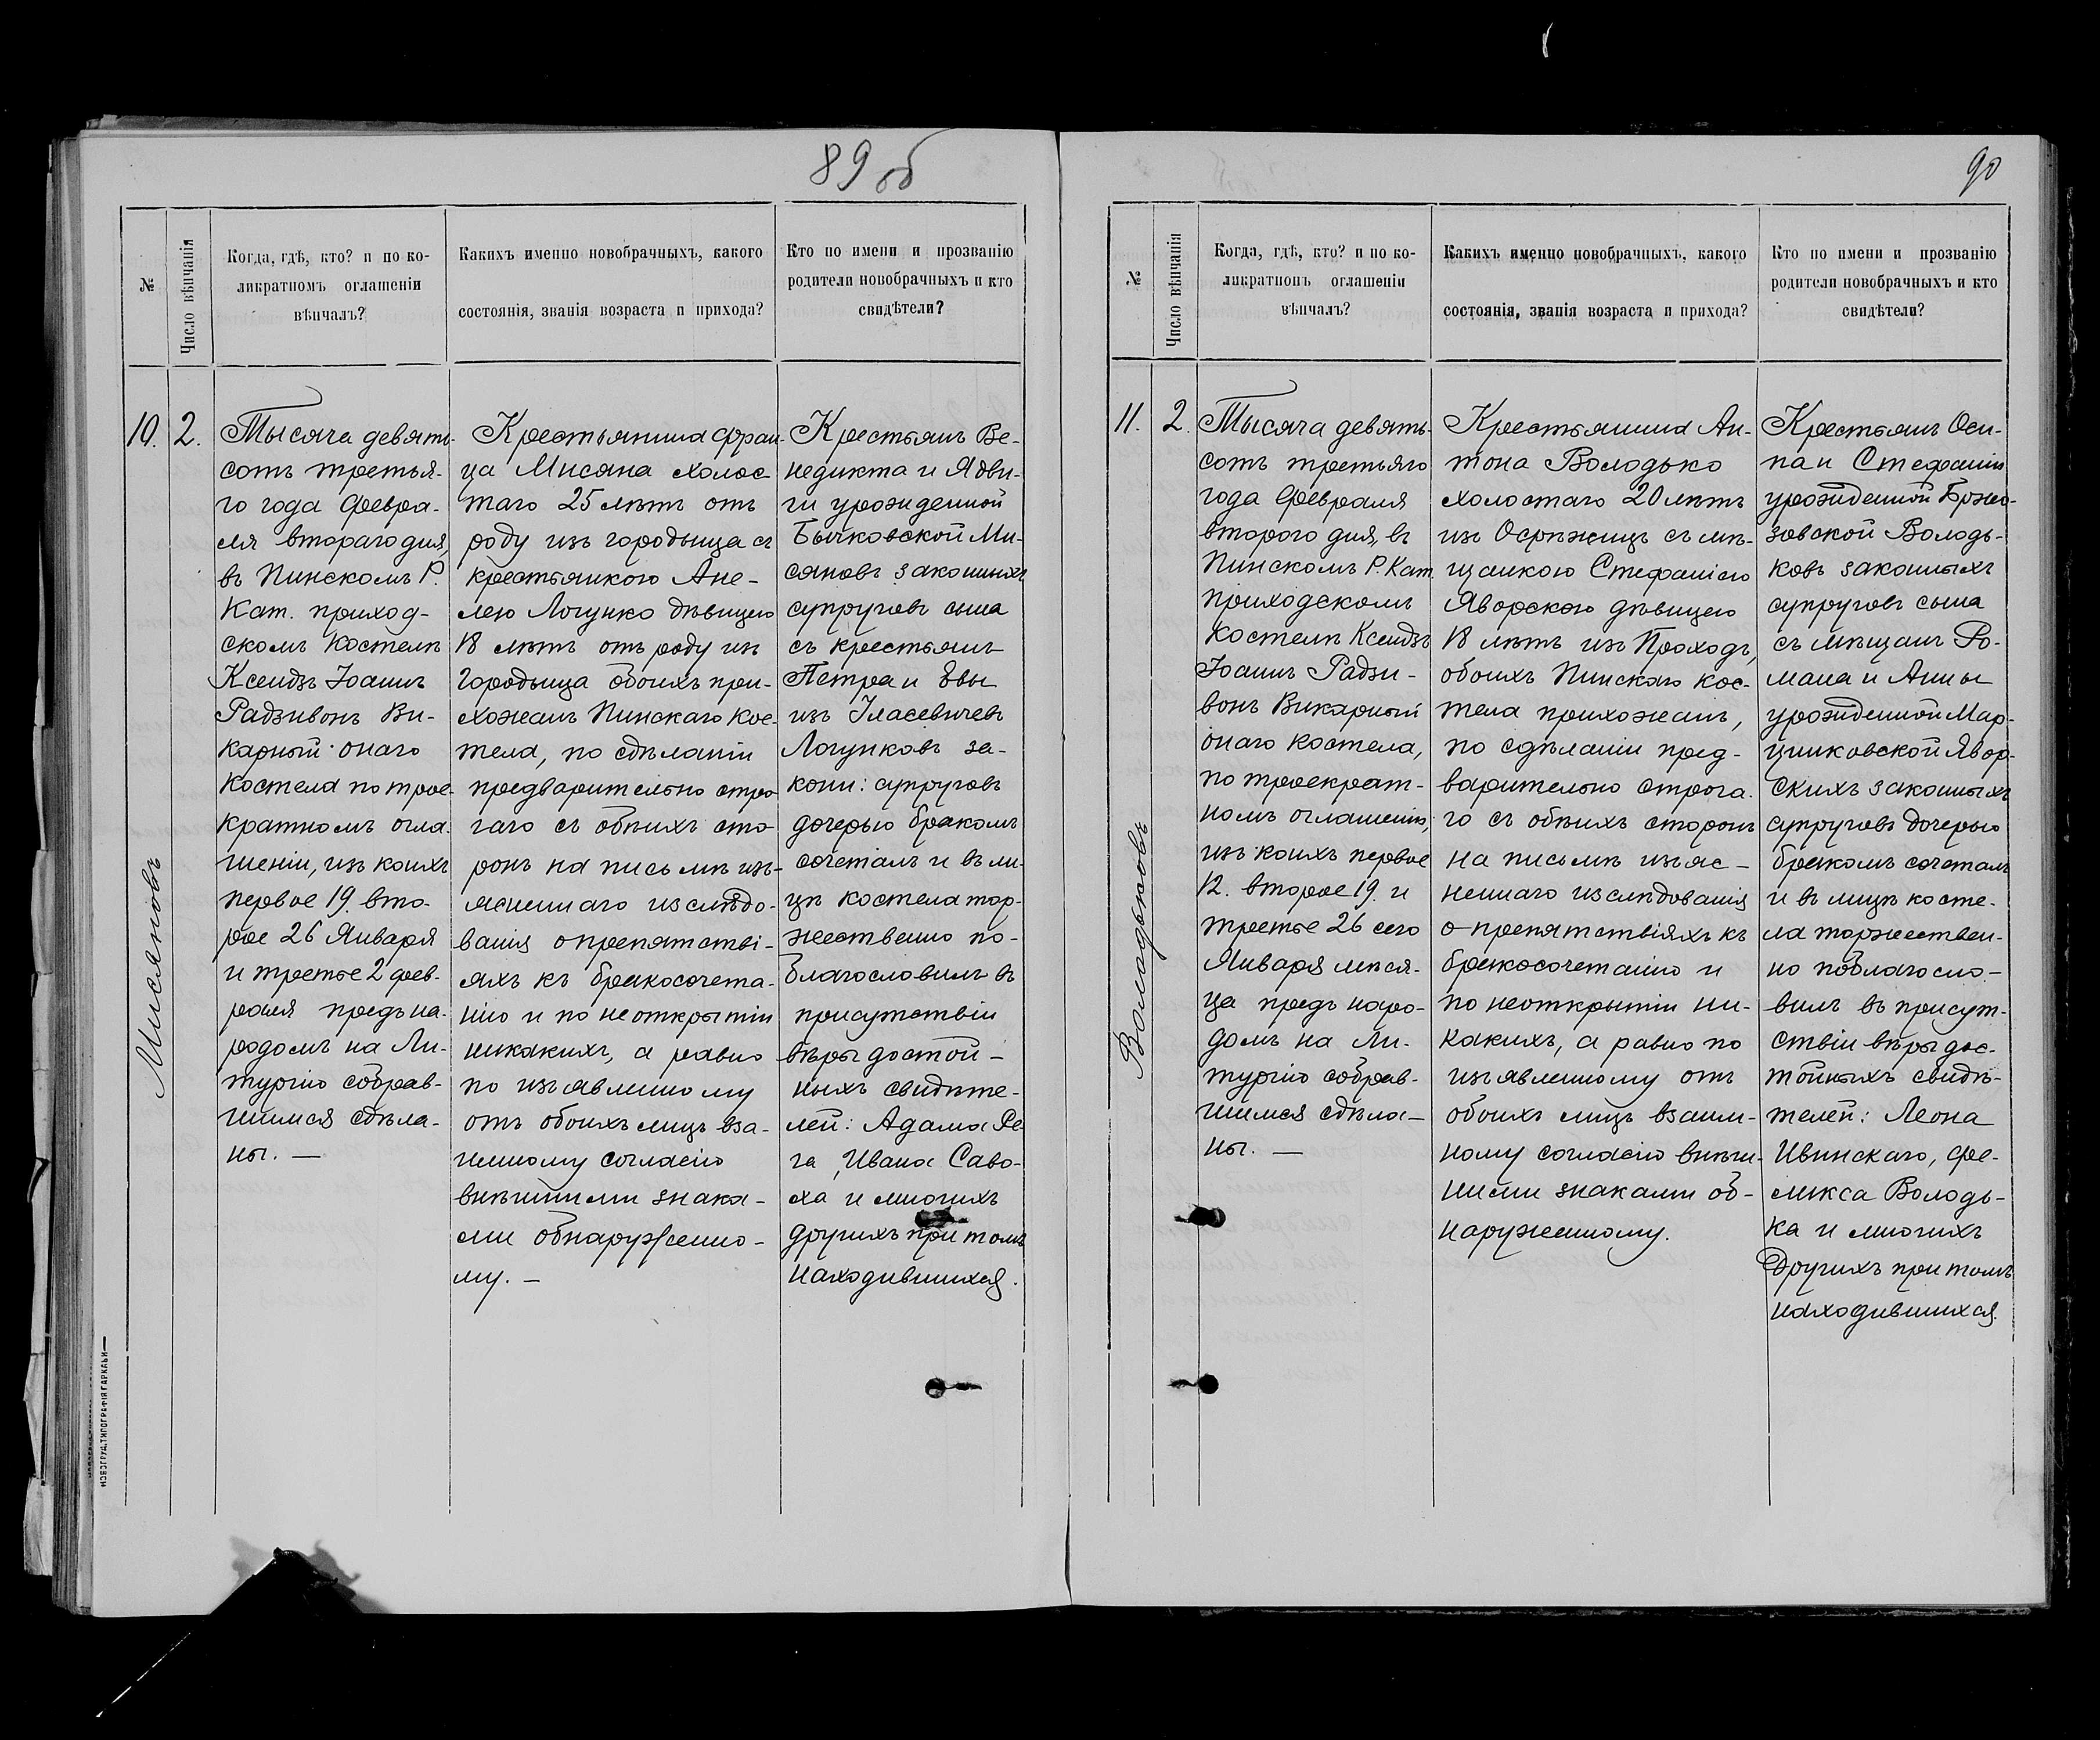 89 об
№
Число вѣнчанія
Когда, гдѣ, кто? и по ко-
ликратномъ оглашеніи
вѣнчалъ?
Какихъ именно новобрачныхъ, какого
состоянія, званія возраста и прихода?
Кто по имени и прозванію
родители новобрачныхъ и кто
свидѣтели?
10.
2.
Мисяновъ
Тысяча девять-
сотъ третья-
го года Февра-
ля втораго дня,
въ Пинскомъ Р.
Кат. приход-
скомъ Костелѣ
Ксендзъ Іоаннъ
Радзивонъ Ви-
карный онаго
Костела по трое-
кратномъ огла-
шеніи, изъ коихъ
первое 19. вто-
рое 26 Января
и третье 2 фев-
раля предъ на-
родомъ на Ли-
тургію собрав-
шимся сдѣла-
ны. —
Крестьянина Фран-
ца Мисяна холос-
таго 25 лѣтъ отъ
роду изъ городыща съ
крестьянкою Ане-
лею Логунко дѣвицею
18 лѣтъ отъ роду изъ
Городыща обоихъ при-
хожанъ Пинскаго Кос-
тела, по сдѣланіи
предварительно стро-
гаго съ обѣихъ сто-
ронъ на письмѣ изъ-
ясненнаго изслѣдо-
ванія о препятстві-
яхъ къ бракосочета-
нію и по неоткрытіи
никакихъ, а равно
по изъявленному
отъ обоихъ лицъ вза-
имному согласію
внѣшними знака-
ми обнаруженно-
му. —
Крестьянъ Ве-
недикта и Ядви-
ги урожденной
Бычковской Ми-
сяновъ законныхъ
супруговъ сына
съ крестьянъ
Петра и Евы
изъ Гласевичевъ
Логунковъ за-
конн: супруговъ
дочерью бракомъ
сочеталъ и въ ли-
цѣ костела тор-
жественно по-
благословилъ въ
присутствіи
вѣры достой-
ныхъ свидѣте-
лей: Адама Ре
га, Ивана Саво-
ха и многихъ
другихъ при томъ
находившихся.
НОВОГРУД. ТИПОГРАФІЯ ГАРКАВИ
90
№
Число вѣнчанія
Когда, гдѣ, кто? и по ко-
ликратномъ оглашеніи
вѣнчалъ?
Какихъ именно новобрачныхъ, какого
состоянія, званія возраста и прихода?
Кто по имени и прозванію
родители новобрачныхъ и кто
свидѣтели?
11.
2.
Володьковъ
Тысяча девять-
сотъ третьяго
года Февраля
второго дня, въ
Пинскомъ Р. Кат.
приходскомъ
Костелѣ Ксендзъ
Іоаннъ Радзи-
вонъ Викарный
онаго Костела,
по троекрат-
номъ оглашеніи,
изъ коихъ первое
12. второе 19. и
третье 26 сего
Января мѣся-
ца предъ наро-
домъ на Ли-
тургію собрав-
шимся сдѣла-
ны. —
Крестьянина Ан-
тона Володько
холостаго 20 лѣтъ
изъ Осрѣжицъ съ мѣ-
щанкою Стефаніею
Яворскою дѣвицею
18 лѣтъ изъ Проходъ,
обоихъ Пинскаго Кос-
тела прихожанъ,
по сдѣланіи пред-
варительно строга-
го съ обѣихъ сторонъ
на письмѣ изъяс-
неннаго изслѣдованія
о препятствіяхъ къ
бракосочетанію и
по неоткрытіи ни-
какихъ, а равно по
изъявленному отъ
обоихъ лицъ взаим-
ному согласію внѣш-
ними знаками об-
наруженному.
Крестьянъ Оси-
па и Стефаніи
урожденной Бржо-
зовской Володь-
ковъ законныхъ
супруговъ сына
съ мѣщанъ Ро-
мана и Анны
урожденной Мар-
цинковской Явор-
скихъ законныхъ
супруговъ дочерью
бракомъ сочеталъ
и въ лицѣ косте-
ла торжествен-
но поблагосло-
вилъ въ присут-
ствіи вѣры дос-
тойныхъ свидѣ-
телей: Леона
Ивинскаго, Фе-
ликса Володь-
ка и многихъ
другихъ при томъ
находившихся.